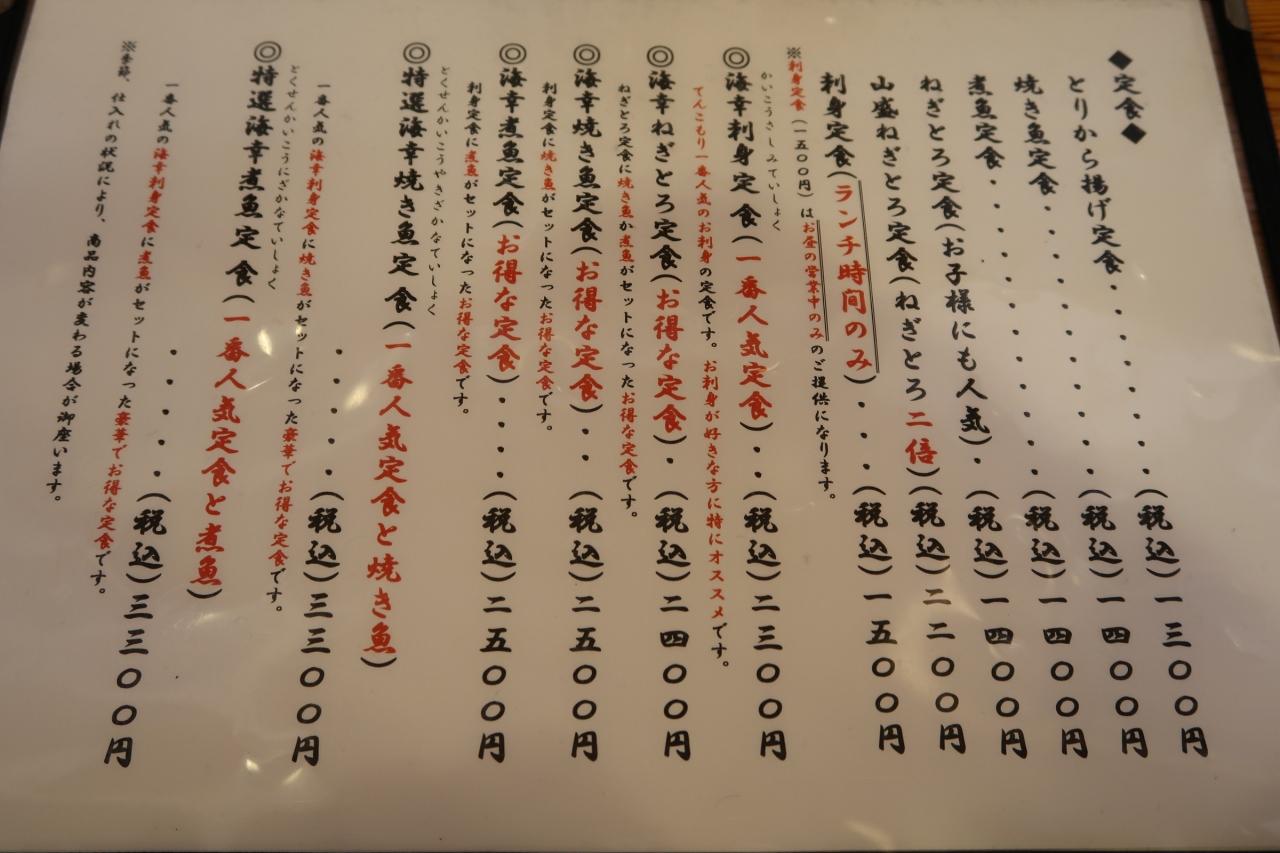 ◆定食◆
とりから揚げ定食・・・・・・(税込)一三〇〇円
焼き魚定食・・・・・・・・(税込)一四〇〇円
煮魚定食・・・・・・・・・(税込)一四〇〇円
ねぎとろ定食(お子様にも人気)・(税込)一四〇〇円
山盛ねぎとろ定食(ねぎとろ二倍)(税込)二二〇〇円
刺身定食(ランチ時間のみ)・・・(税込)一五〇〇円
※刺身定食(一五〇〇円)はお昼の営業中のみのご提供になります。
かいこうさしみていしょく
◎海幸刺身定食(一番人気定食)・・(税込)二三〇〇円
てんこもり一番人気のお刺身の定食です。お刺身が好きな方に特にオススメです。
◎海幸ねぎとろ定食(お得な定食)・(税込)二四〇〇円
ねぎとろ定食に焼き魚か煮魚がセットになったお得な定食です。
◎海幸焼き魚定食(お得な定食)・・(税込)二五〇〇円
刺身定食に焼き魚がセットになったお得な定食です。
◎海幸煮魚定食(お得な定食)・・・・(税込)二五〇〇円
刺身定食に煮魚がセットになったお得な定食です。
とくせんかいこうやきざかなていしょく
◎特選海幸焼き魚定食(一番人気定食と焼き魚)
・・・・・(税込)三三〇〇円
一番人気の海幸刺身定食に焼き魚がセットになった豪華でお得な定食です。
とくせんかいこうにざかなていしょく
◎特選海幸煮魚定食(一番人気定食と煮魚)
・・・・・(税込)三三〇〇円
一番人気の海幸刺身定食に煮魚がセットになった豪華でお得な定食です。
※季節、仕入れの状況により、商品内容が変わる場合が御座います。